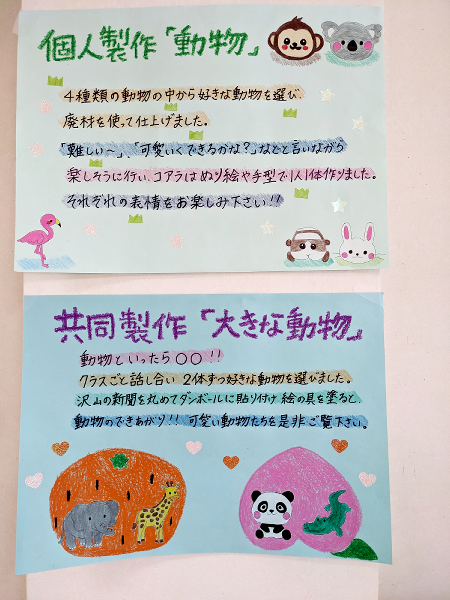 個人製作「動物」
4種類の動物の中から好きな動物を選び、
廃材を使って仕上げました。
「難しい〜」、「可愛いくできるかな？」などと言いながら
楽しそうに行い、コアラはぬり絵や手型で1人1体作りました。
それぞれの表情をお楽しみ下さい!!
共同製作「大きな動物」
動物といったら○○!!
クラスごと話し合い 2体ずつ好きな動物を選びました。
沢山の新聞を丸めてダンボールに貼り付け 絵の具を塗ると、
動物のできあがり!! 可愛い動物たちを是非ご覧下さい。